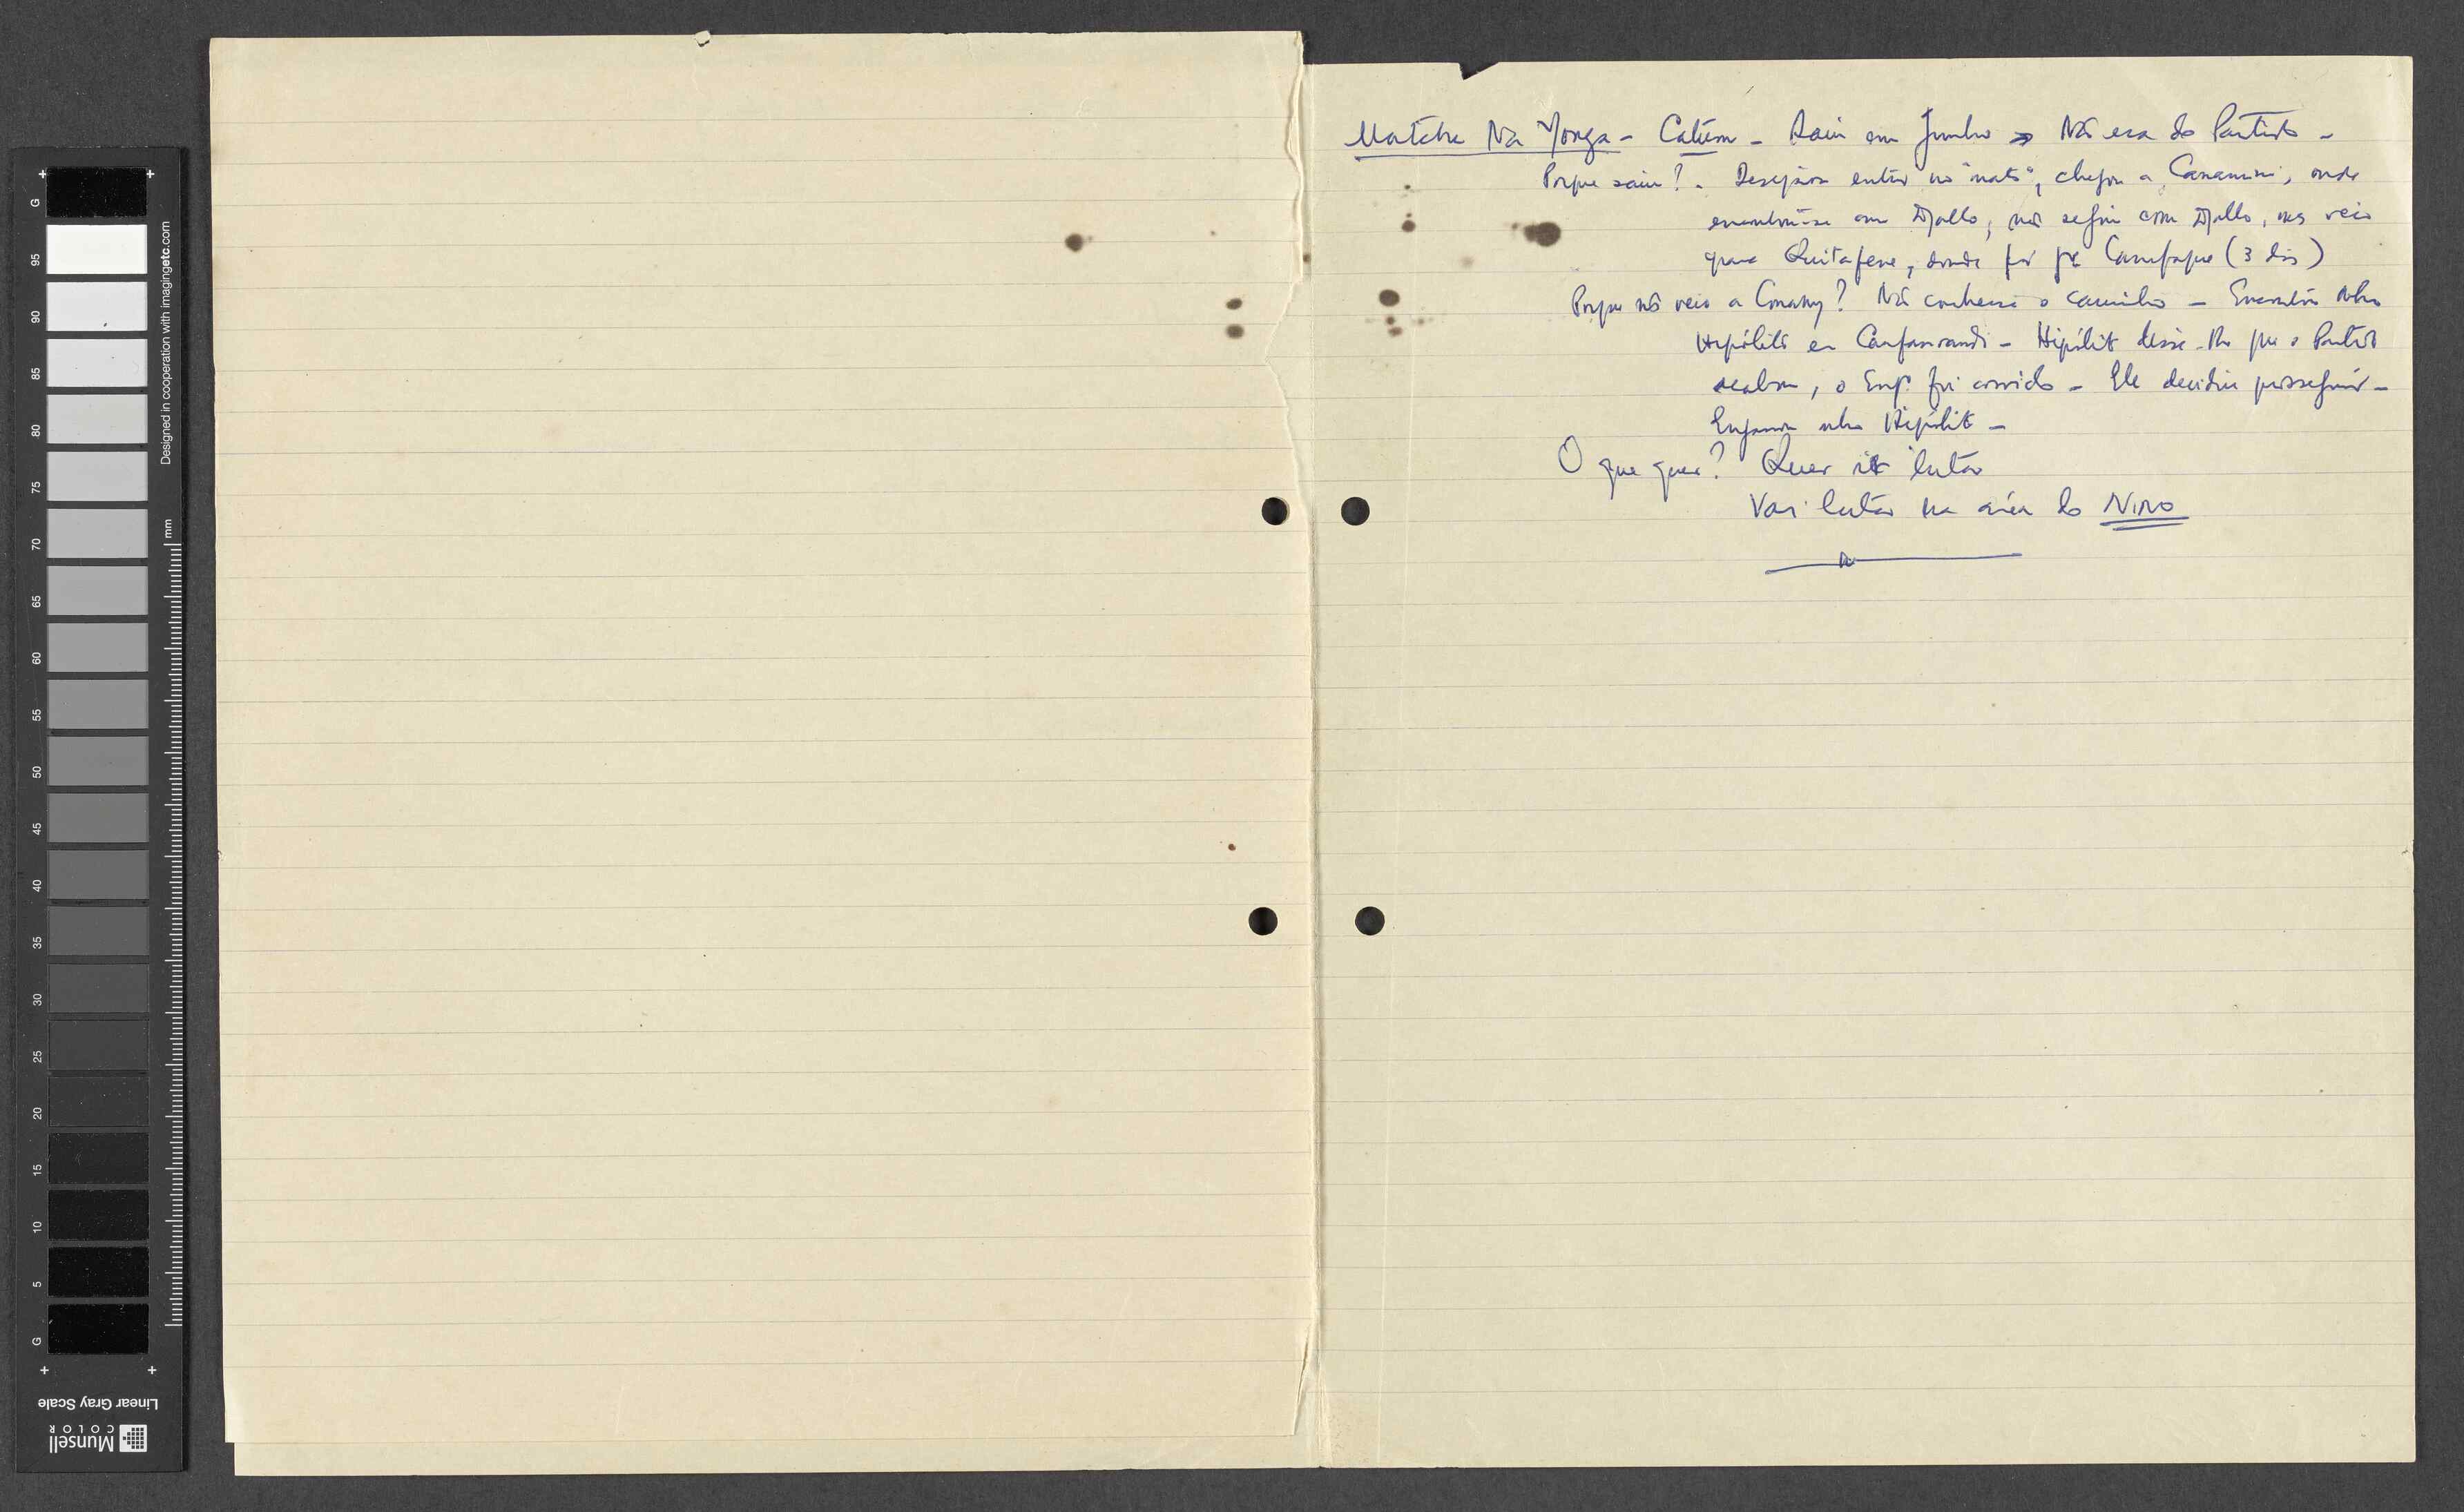 Matche Na Yonga - Catúm - Saiu em Junho → Não era do Partido -
Porque saiu? - Desejava entrar no "mato", chegou a Canamina, onde
encontrou-se com Djallo, não seguiu com Djallo, mas veio
para Quitafene, donde foi pª (3 dias)
Porque não veio a Conakry? Não conhecia o caminho - Encontrou nho
Hipólito em - Hipólito disse-lho que o Partido
acabou, o Engº. foi corrido - Ele decidiu prosseguir -
Enganou nho Hipólito -
O que quer? Quer ir lutar
Vai lutar na área do NINO
G 95 90 85 80 75 70 65 60 55 50 45 40 35 30 25 20 15 10 5 G
mm
Designed in cooperation with imagingetc.com
Linear Gray Scale
Munsell
COLOR